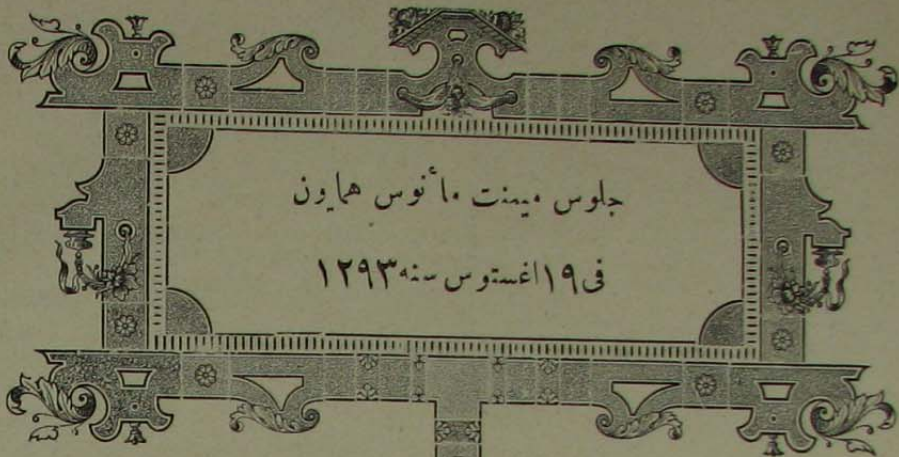 جلوس میمنت مأنوس همایون
فی ١٩ اغستوس سنه ١٢٩٣